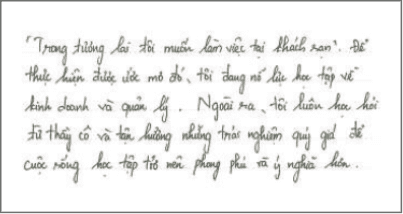 "Trong tương lai tôi muốn làm việc tại khách sạn". Để
thực hiện được ước mơ đó, tôi đang nỗ lực học tập về
kinh doanh và quản lý. Ngoài ra, tôi luôn học hỏi
từ thầy cô và tận hưởng những trải nghiệm quý giá để
cuộc sống học tập trở nên phong phú và ý nghĩa hơn.